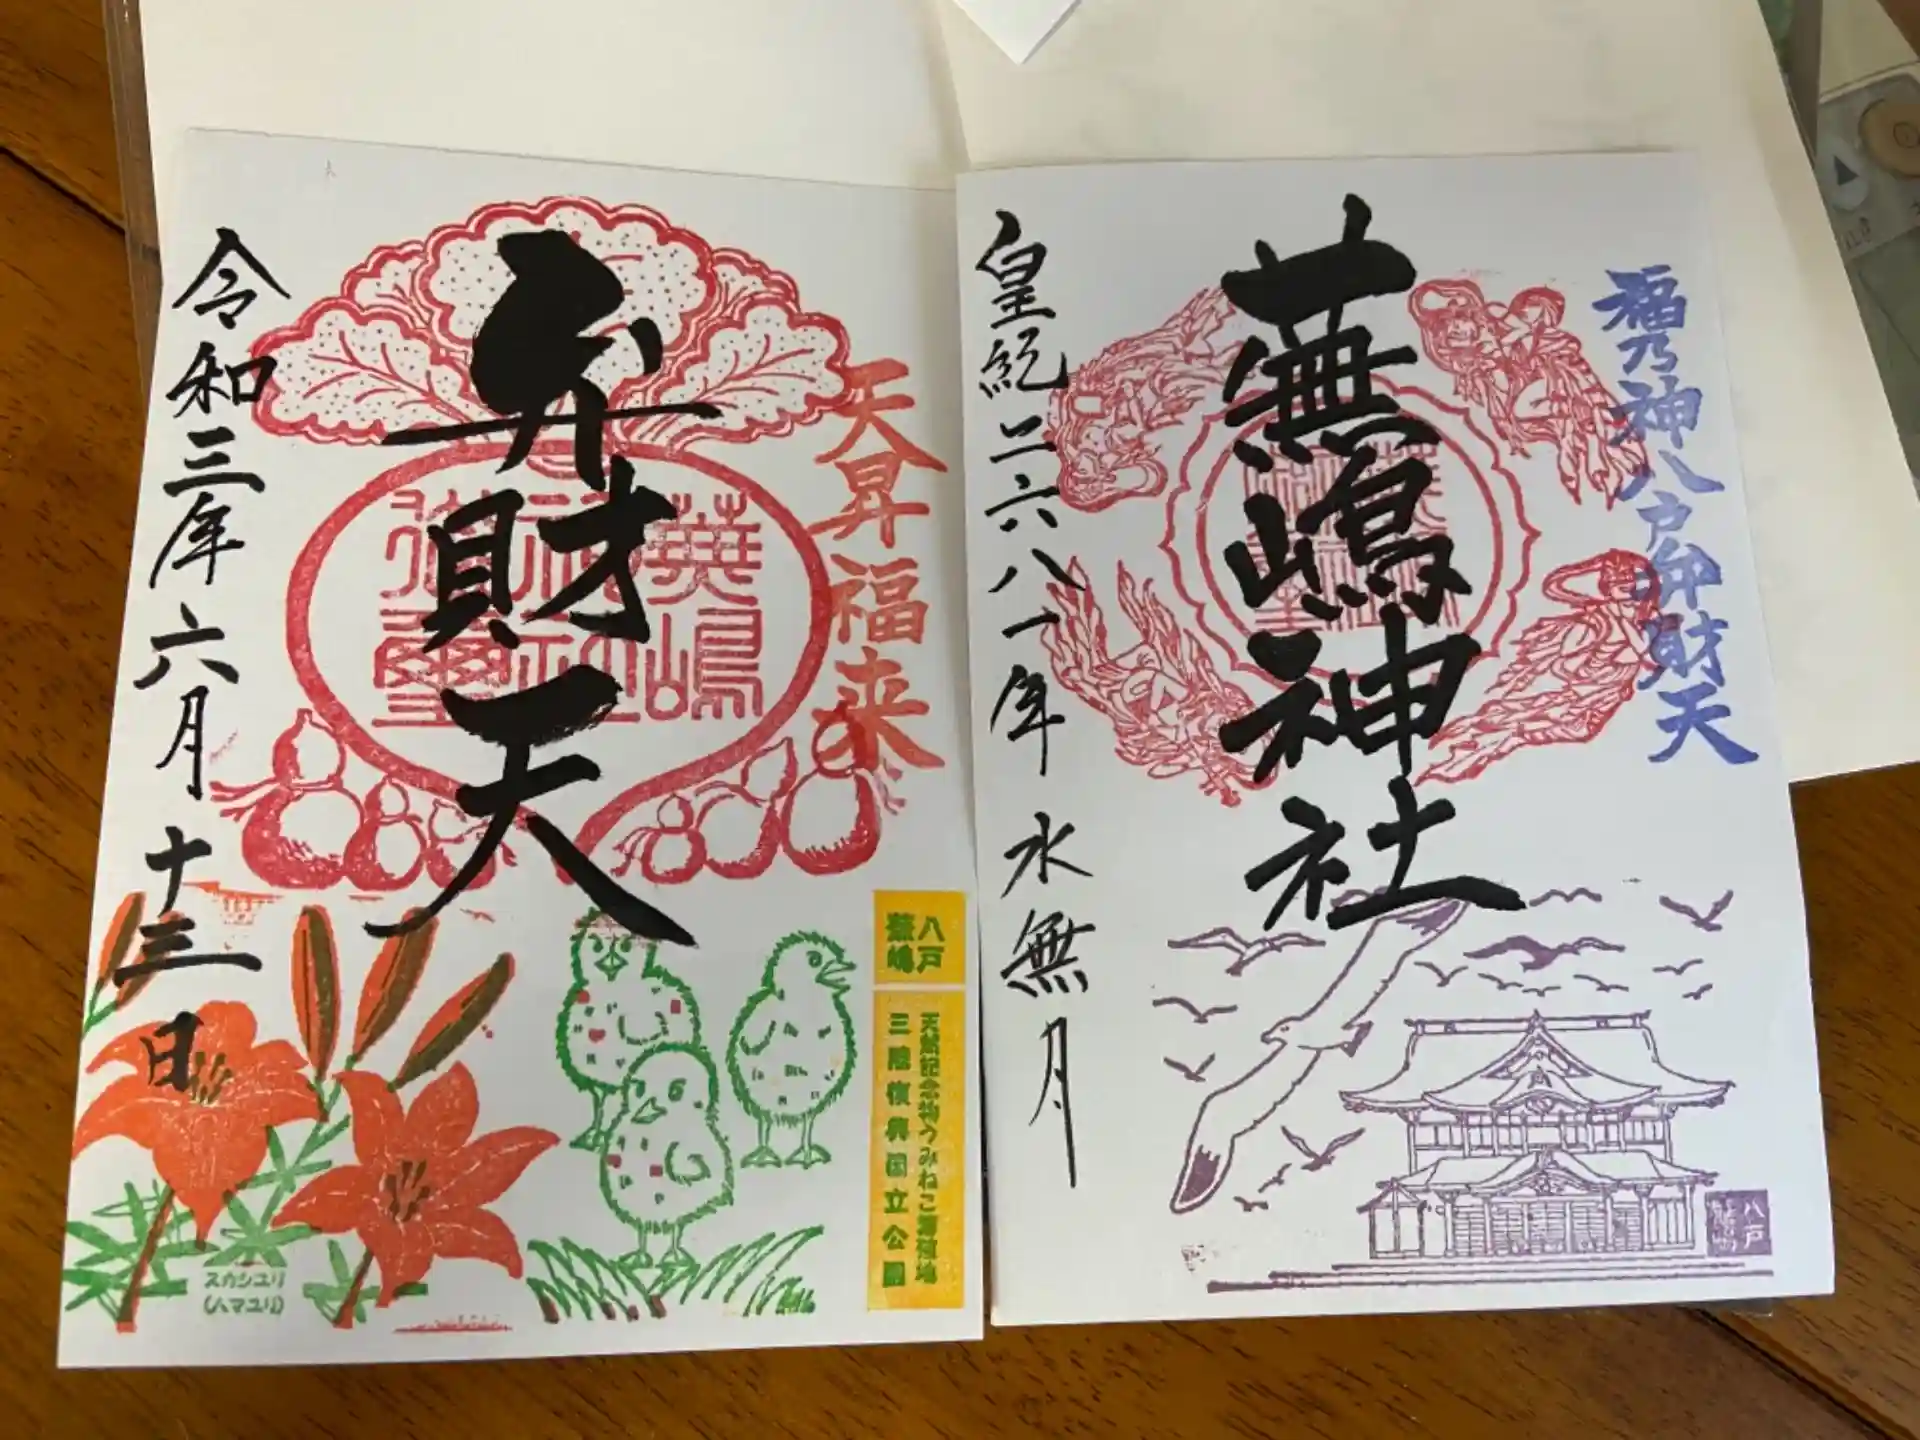 弁財天
令和三年六月十三日
天昇福来
蕪嶋
神社
弥
璽
八戸
蕪嶋
天然記念物うみねこ蕃殖地
三陸復興国立公園
スカシユリ
(ハマユリ)
福乃神八戸弁財天
蕪嶋神社
皇紀二六八一年水無月
八戸
蕪嶋